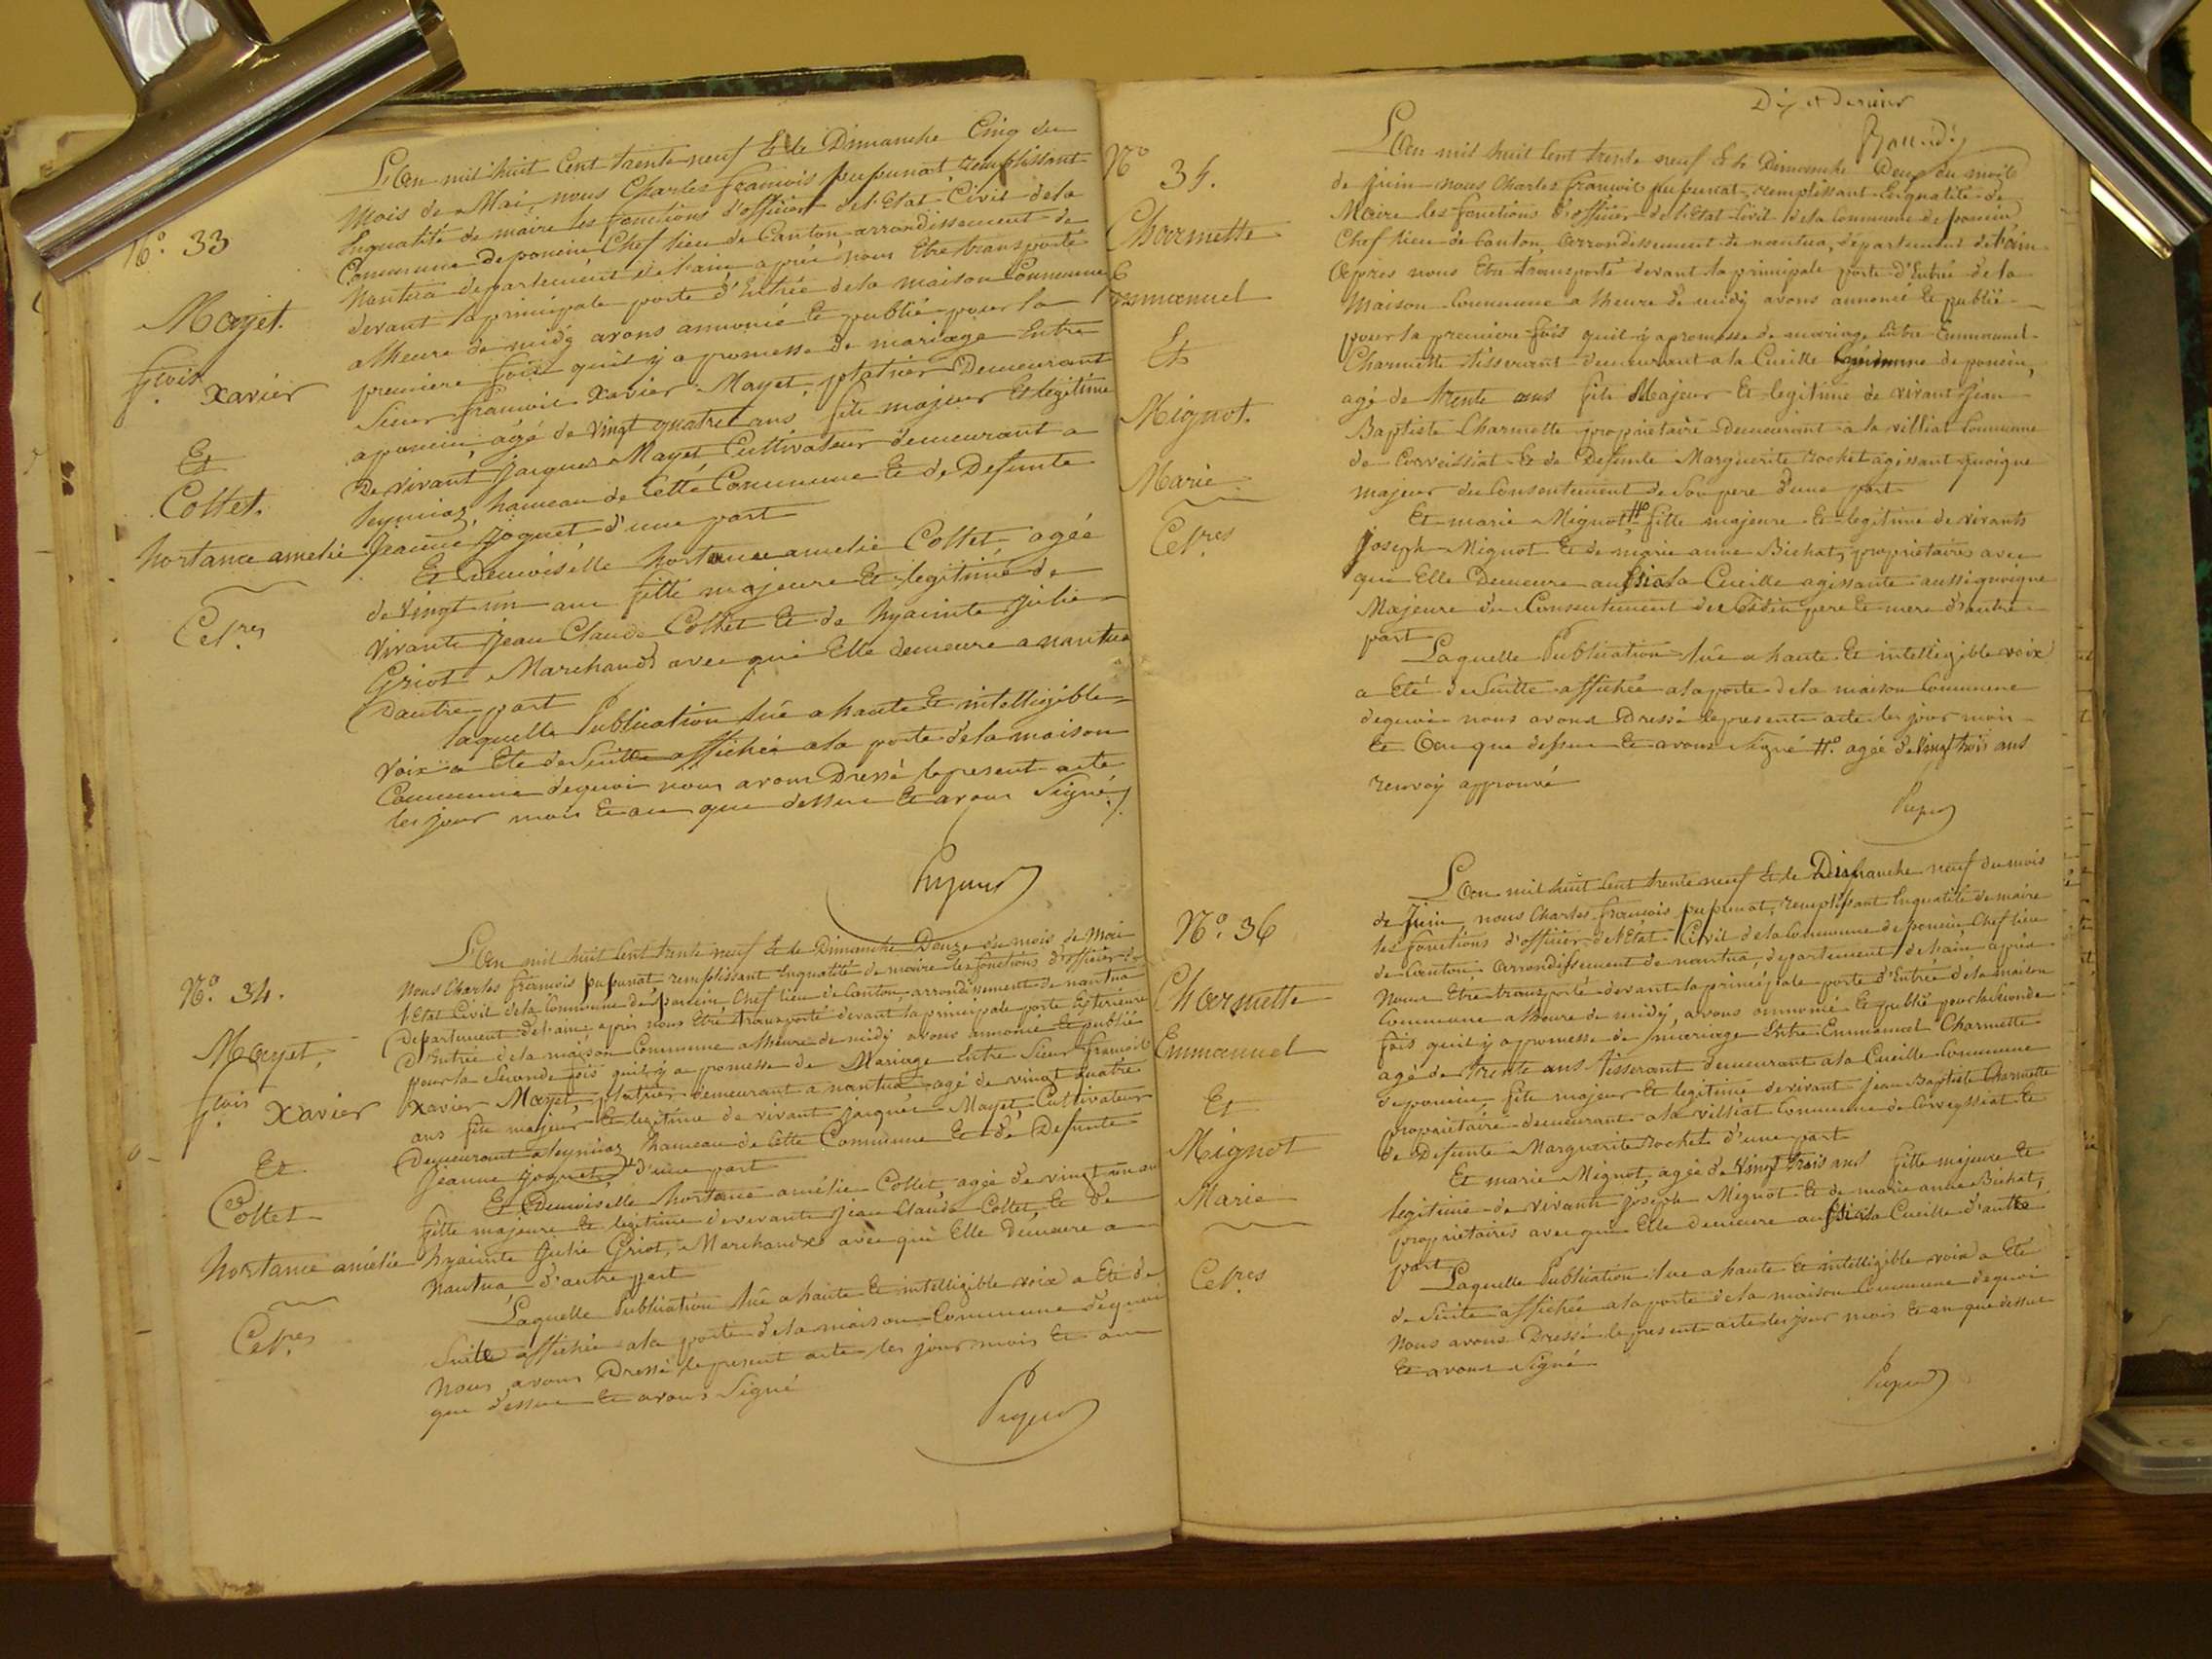 L'an mil huit Cent trente neuf Et le Dimanche Cinq du
mois de Mai, nous Charles françois pupunat, remplissant
Enqualité de maire les fonctions d'officier del'Etat Civil dela
Commune deponcin Chef lieu de Canton arrondissement de
nantua departement de l'ain après nous Etre transporté
devant la principale porte d'Entrée dela maison Commune
alheure de midÿ avons annoncé Et publié pour la
premiere fois quil ÿ a promesse de mariage Entre
Sieur françois Xavier Mayet, platrier Demeurant
aponcin agé de vingt quatre ans fils majeur Et legitime
De vivant Jacques Mayet Cultivateur demeurant a
leymiaz, hameau de Cette Commune Et de Defunte
Jeanne Joquet d'une part
Et Demoiselle hortance amelie Collet agée
de vingt un ans fille majeure Et legitime de
vivants Jean Claude Collet Et de hyacinte Julie
Griot Marchands avec qui Elle demeure a nantua
Dautre part
laquelle Publication lûe a haute Et intelligible
voix a Eté de Suitte affichée ala porte dela maison
Commune dequoi nous avons Dressé lepresent acte
les jour mois Et an que dessus Et avons Signé
N.º 33
Mayet.
f.çois Xavier
Et
Collet.
hortance amelie
Cel.res
L'an mil huit Cent trente neuf Et le Dimanche Douze du mois de Mai
Nous Charles françois pupunat remplissant Enqualité de maire les fonctions d'officier de
l'Etat Civil dela Commune de poncin Chef lieu de Canton, arrondissement de nantua
Departement del'ain après nous Etre transporté devant la principale porte Exterieure
D'Entrée dela maison Commune alheure de midÿ avons annoncé Et publié
pour la Seconde fois quil ÿ a promesse de Mariage Entre Sieur françois
Xavier Mayet, platrier demeurant a nantua agé de vingt quatre
ans fils majeur Et legitime de vivant Jacques Mayet Cultivateur
Demeurant a leymiaz hameau de Cette Commune Et de Defunte
Jeanne Joquet, d'une part
Et Demoiselle hortance amélie Collet agée de vingt un ans
fille majeure Et legitime de vivants Jean Claude Collet Et de
hyacinte Julie Griot, Marchands avec qui Elle Demeure a
Nantua, d'autre part
Laquelle Publication lûe a haute Et intelligible voix a Eté de
Suitte affichée ala porte dela maison Commune dequoi
Nous avons Dressé lepresent acte les jour mois Et an
que dessus Et avons Signé
N.º 34.
Mayet,
f.çois Xavier
Et
Collet
hortance amélie
Cel.res
Dix et dernier
L'an mil huit Cent trente neuf Et le Dimanche Deux du mois
de Juin nous Charles françois pupunat, remplissant Enqualité de
Maire les fonctions d'officier de l'Etat Civil dela Commune de poncin
Chef lieu de Canton arrondissement de nantua, département del'ain
Après nous Etre transporté devant la principale porte d'Entrée dela
Maison Commune a lheure de midÿ avons annoncé Et publié
pour la premiere fois quil ÿ a promesse de mariage Entre Emmanuel
Charmette tisserant demeurant a la Cueille Commune de poncin,
agé de trente ans fils Majeur Et legitime de vivant Jean
Baptiste Charmette proprietaire Demeurant a la villiat Commune
de Corveissiat Et de Defunte Marguerite rochet agissant quoique
majeur du Consentement de Son pere d'une part
Et marie Mignot # fille majeure Et legitime de vivants
Joseph Mignot Et de marie anne Bichat, proprietaires avec
qui Elle Demeure aussi a la Cueille agissante aussi quoique
Majeure du Consentement de Sesdits pere Et mere d'autre
part
Laquelle Publication lûe a haute Et intelligible voix
a Eté de Suitte affichée a la porte dela maison Commune
dequoi nous avons Dressé lepresent acte les jour mois
Et an que dessus Et avons Signé # agée de vingt trois ans
renvoÿ approuvé
Nº 35.
Charmette
Emmanuel
Et
Mignot.
Marie
Cel.res
L'an mil huit Cent trente neuf Et le Dimanche neuf du mois
de Juin nous Charles françois pupunat, remplissant Enqualité de maire
les fonctions d'officier de l'Etat Civil dela Commune de poncin Chef lieu
de Canton arrondissement de nantua, departement del'ain après
Nous Etre transporté devant la principale porte d'Entrée dela maison
Commune a lheure de midÿ avons annoncé Et publié pour la Seconde
fois quil ÿ a promesse de mariage Entre Emmanuel Charmette
agé de trente ans tisserant demeurant a la Cueille Commune
de poncin, fils majeur Et legitime de vivant Jean Baptiste Charmette
proprietaire demeurant a la villiat Commune de Corveyssiat Et
de Defunte Marguerite rochet d'une part
Et marie Mignot, agée de vingt trois ans fille majeure Et
legitime de vivants Joseph Mignot Et de marie anne Bichat,
proprietaires avec qui Elle demeure aussi a la Cueille d'autre
part
Laquelle Publication lue a haute Et intelligible voix a Eté
de Suite affichée a la porte dela maison Commune dequoi
Nous avons Dressé lepresent acte les jour mois Et an que dessus
Et avons Signé
N.º 36
Charmette
Emmanuel
Et
Mignot
Marie
Cel.res